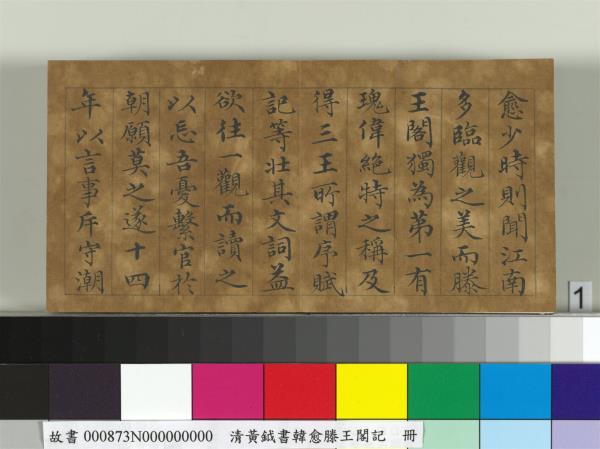 愈少時則聞江南
多臨觀之美而滕
王閣獨為第一有
瑰偉絕特之稱及
得三王所謂序賦
記等壯其文詞益
欲往一觀而讀之
以忘吾憂繫官於
朝願莫之遂十四
年以言事斥守潮
1
故書 000873N000000000 清黃鉞書韓愈滕王閣記 冊